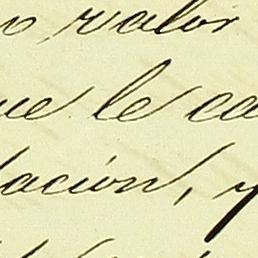 o valor
ue le ca
dación, y